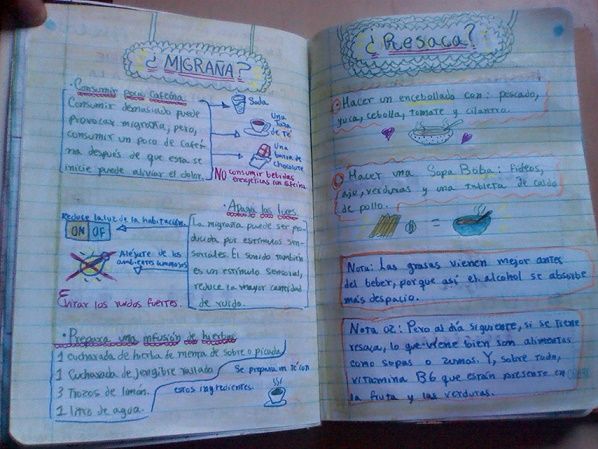 ¿ MIGRAÑA?
· Consumir poca cafeína
Consumir demasiado puede
provocar migraña, pero,
consumir un poco de cafeí
na después de que esta se
inicie puede aliviar el dolor.
Soda
Una
Taza
de Té
Una
barra de
chocolate
NO consumir bebidas
energéticas con cafeína
· Apaga las luces
Reduce la luz de la habitación.
ON OF
Aléjate de los
ambientes luminosos
Evitar los ruidos fuertes.
La migraña puede ser pro
ducida por estímulos sen-
soriales. El sonido también
es un estímulo sensorial,
reduce la mayor cantidad
de ruido.
· Prepara una infusión de hierbas
1 cucharada de hierba de menta de sobre o picada
1 Cucharada de jengibre rallado
3 trozos de limón.
1 litro de agua.
Se prepara un té con
estos ingredientes.
¿Resaca?
Hacer un encebollado con: pescado,
yuca, cebolla, tomate y cilantro.
Hacer una Sopa Boba: Fideos,
ajo, verduras y una tableta de caldo
de pollo.
=
Nota: Las grasas vienen mejor antes
del beber, porque así el alcohol se absorbe
más despacio.
Nota 02: Pero al día siguiente, si se tiene
resaca, lo que viene bien son alimentos
como sopas o zumos. Y, sobre todo,
vitamina B6 que están presente en
la fruta y las verduras.